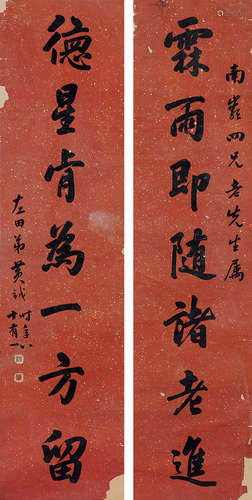 南崖四兄老先生属
霖雨即随諸老進
德星肯為一方留
左田弟黄鉞時年八
十有一